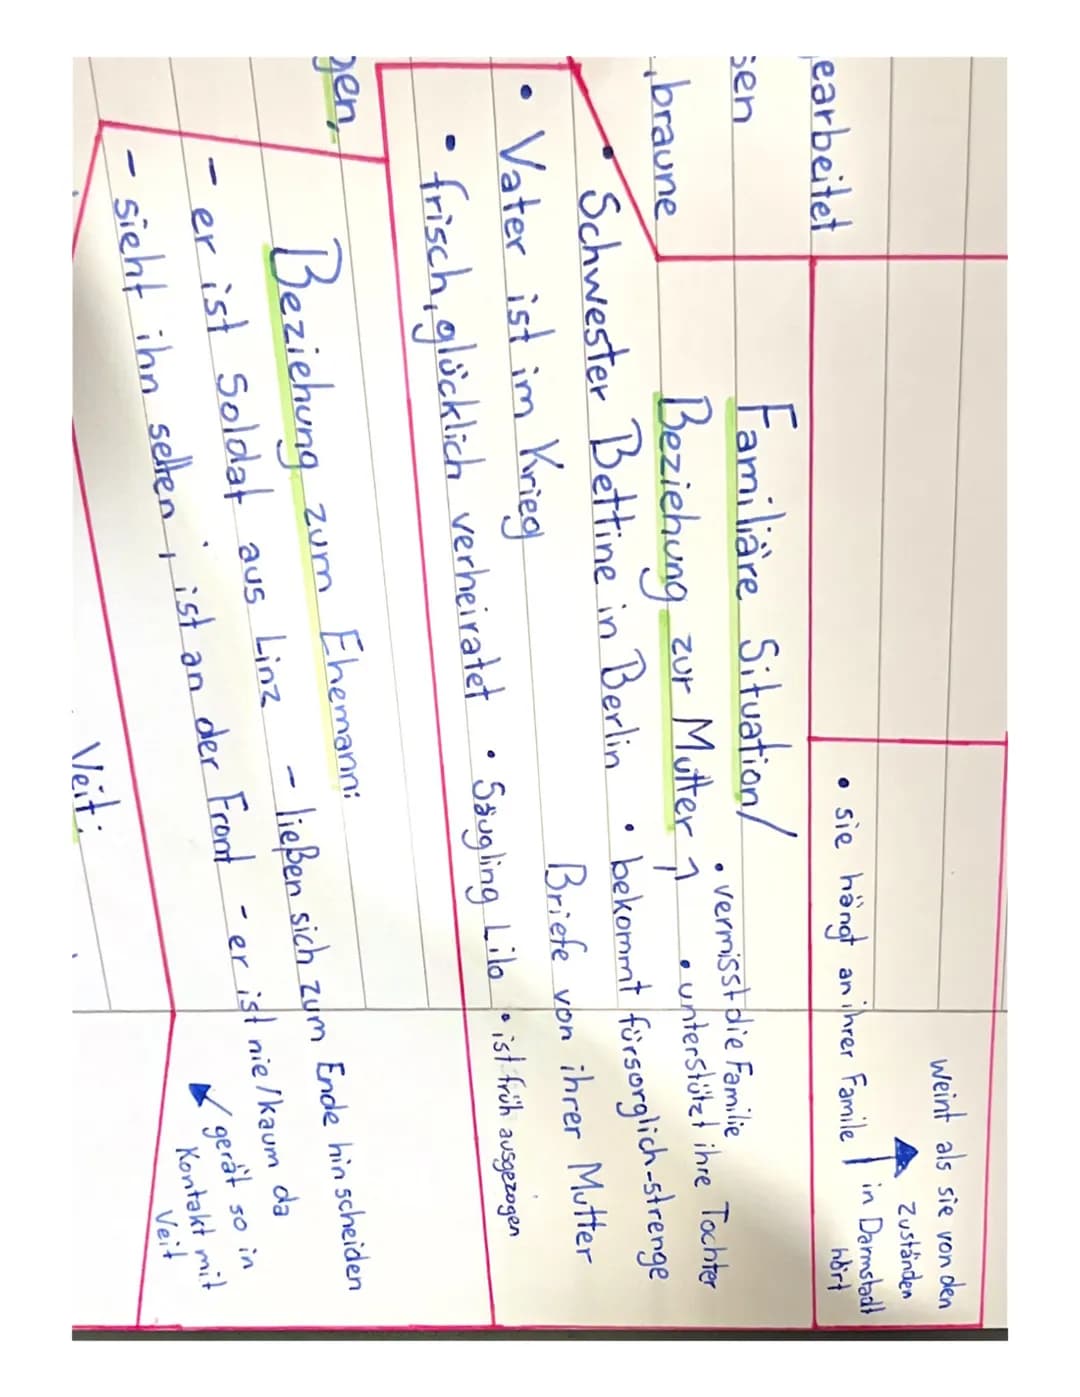 weint als sie von den
zuständen
• sie hängt an ihrer Famile in Darmstadt
hört
earbeitet
sen
, braune
Familiäre Situation/
• vermisst die Familie
Beziehung zur Mutter
• unterstützt ihre Tochter
• Schwester Bettine in Berlin • bekommt fürsorglich-strenge
Briefe von ihrer Mutter
• Vater ist im Krieg
• frisch, glücklich verheiratet • Säugling Lilo • ist früh ausgezogen
gen,
Beziehung zum Ehemann:
- er ist Soldat aus Linz - ließen sich zum Ende hin scheiden
- sieht ihn selten, ist an der Front - er ist nie/kaum da
gerät so in
Kontakt mit
Veit
Veit: